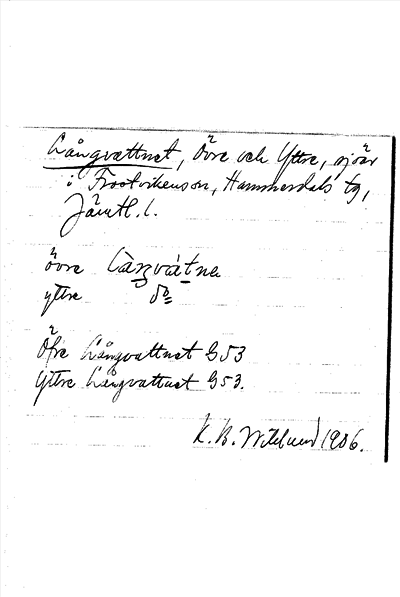 Långvattnet, Övre och Yttre, sjöar
i Frostvikens sn, Hammerdals tg,
Jämtl. l.
övre Làŋvátne
yttre do
Öfre Långvattnet G53
Yttre Långvattnet G53.
K. B. Wiklund 1906.